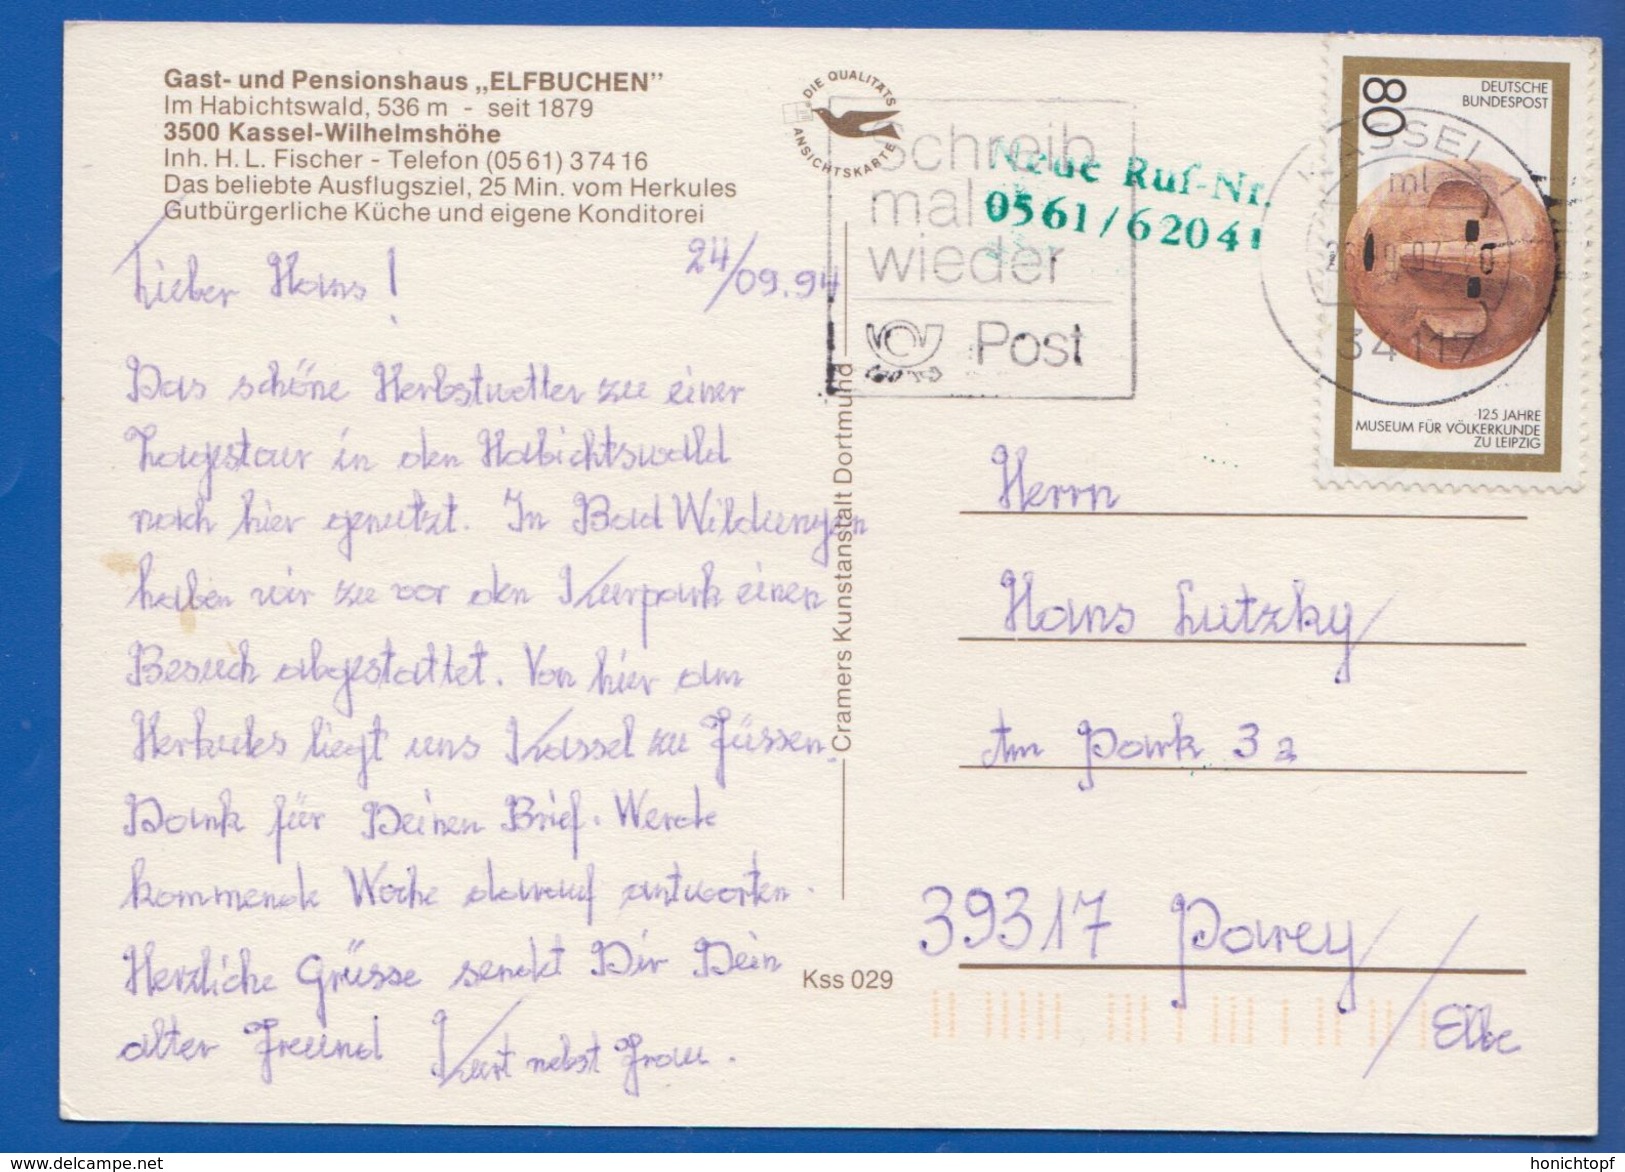 Gast- und Pensionshaus „ELFBUCHEN”
Im Habichtswald, 536 m - seit 1879
3500 Kassel-Wilhelmshöhe
Inh. H. L. Fischer - Telefon (05 61) 3 74 16
Das beliebte Ausflugsziel, 25 Min. vom Herkules
Gutbürgerliche Küche und eigene Konditorei
DIE QUALITÄTS
ANSICHTSKARTE
Schreib
mal
wieder
Post
Neue Ruf-Nr.
0561/62041
KASSEL 1
ml
34117
80
DEUTSCHE
BUNDESPOST
125 JAHRE
MUSEUM FÜR VÖLKERKUNDE
ZU LEIPZIG
24/09.94
Lieber Hans!
Das schöne Herbstwetter zu einer
Tagestour in den Habichtswald
nach hier genutzt. In Bad Wildungen
haben wir zu vor den Kurpark einen
Besuch abgestattet. Von hier am
Herkules liegt uns Kassel zu Füssen.
Dank für Deinen Brief. Werde
kommende Woche darauf antworten.
Herzliche Grüsse sendet Dir Dein
alter Freund Kurt nebst Frau.
Cramers Kunstanstalt Dortmund
Kss 029
Herrn
Hans Lutzky
Am Park 3a
39317 Parey/
/Elbe
honichtopf
www.delcampe.net